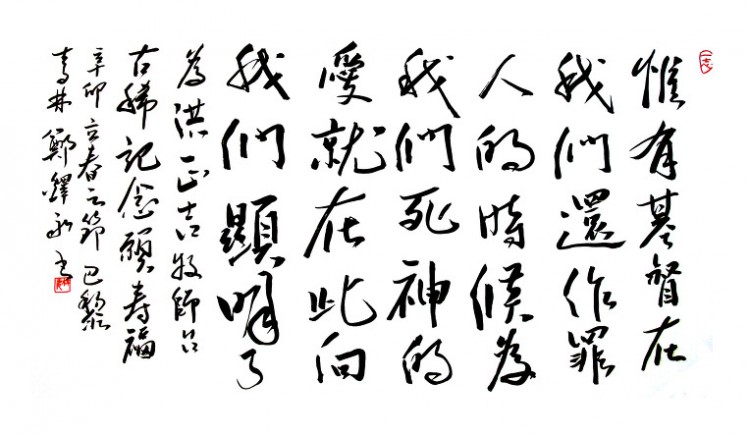 惟有基督在
我們還作罪
人的時候為
我們死神的
愛就在此向
我們顯明了
為洪正吉牧師
古稀記念 壽福
辛卯立春之節 巴黎
青林 鄭 永書